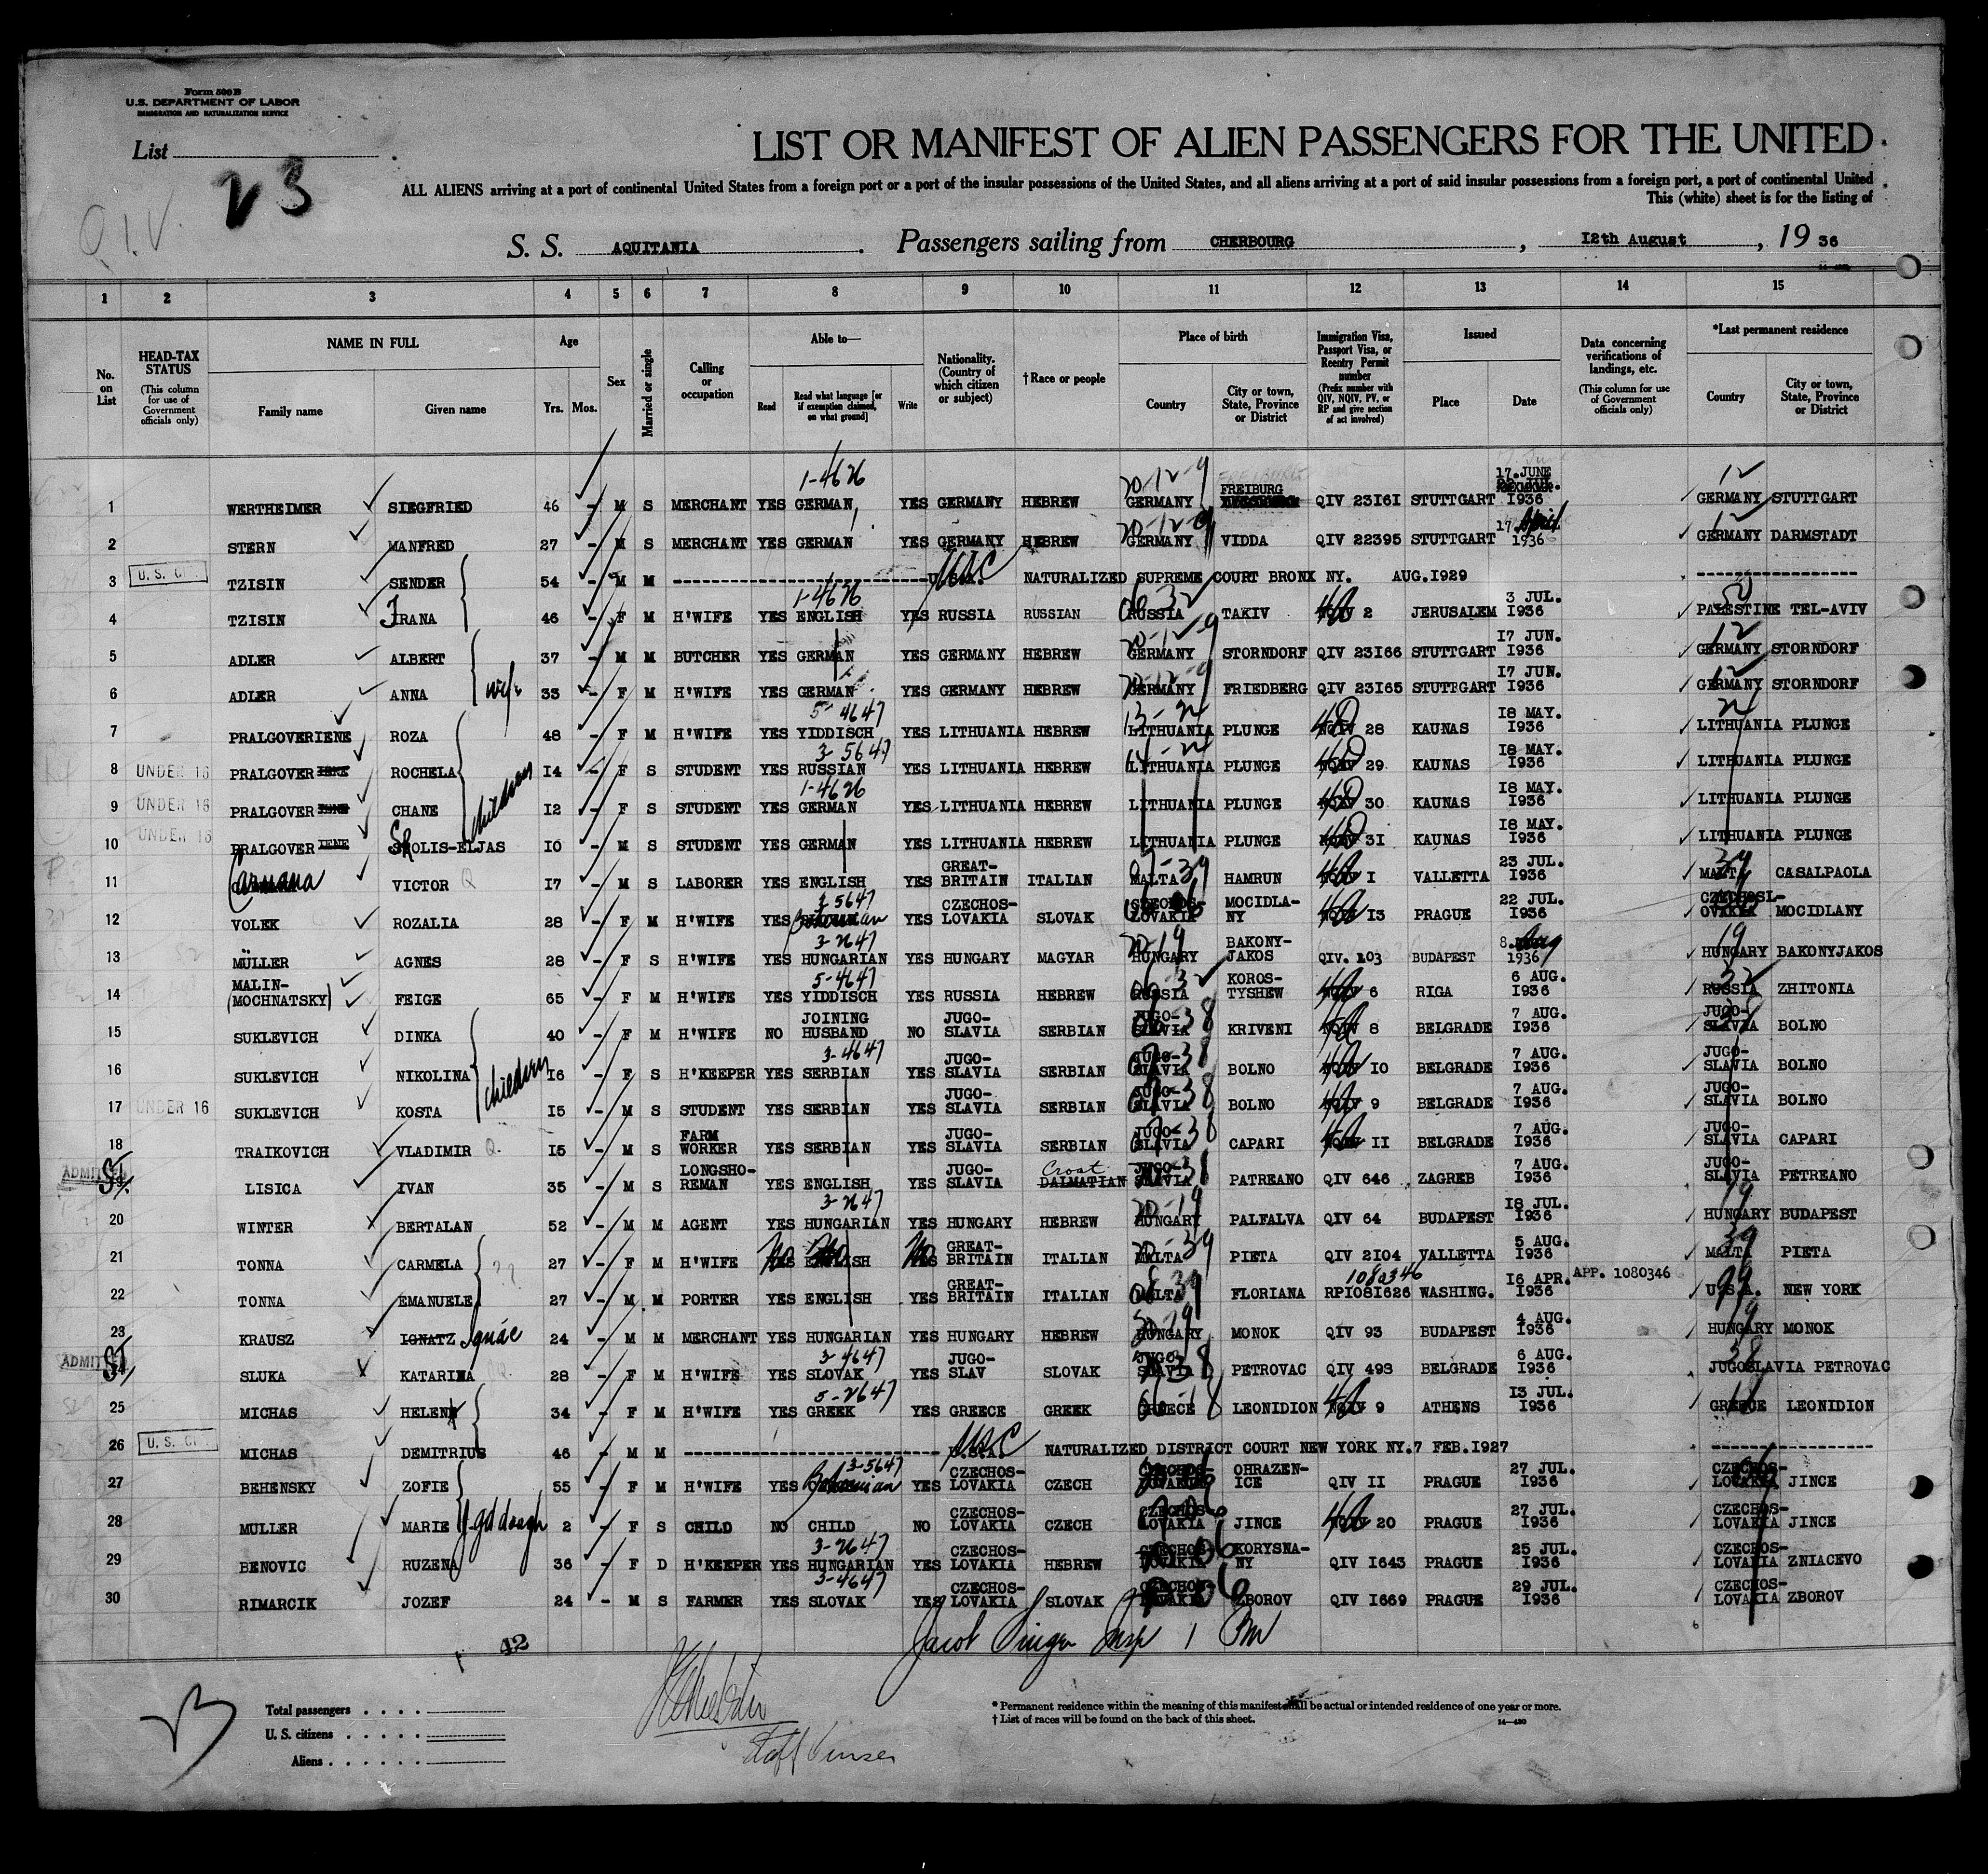 Form 500 B
U.S. DEPARTMENT OF LABOR
IMMIGRATION AND NATURALIZATION SERVICE
List
23
Q.I.V.
LIST OR MANIFEST OF ALIEN PASSENGERS FOR THE UNITED
ALL ALIENS arriving at a port of continental United States from a foreign port or a port of the insular possessions of the United States, and all aliens arriving at a port of said insular possessions from a foreign port, a port of continental United
This (white) sheet is for the listing of
S. S. AQUITANIA. Passengers sailing from CHERBOURG, 12th August, 19 36
1 2 3 4 5 6 7 8 9 10 11 12 13 14 15
No. on List
HEAD-TAX STATUS (This column for use of Government officials only)
NAME IN FULL Family name Given name
Age Yrs. Mos.
Sex
Married or single
Calling or occupation
Able to— Read Read what language [or if exemption claimed, on what ground] Write
Nationality. (Country of which citizen or subject)
†Race or people
Place of birth Country City or town, State, Province or District
Immigration Visa, Passport Visa, or Reentry Permit number (Prefix number with QIV, NQIV, PV, or RP and give section of act involved)
Issued Place Date
Data concerning verifications of landings, etc. (This column for use of Government officials only)
*Last permanent residence Country City or town, State, Province or District
1 WERTHEIMER SIEGFRIED 46 - M S MERCHANT YES GERMAN 1-4626 YES GERMANY HEBREW GERMANY 20-12-9 FREIBURG QIV 23161 STUTTGART 17.JUNE 1936 GERMANY 12 STUTTGART
2 STERN MANFRED 27 - M S MERCHANT YES GERMAN YES GERMANY HEBREW GERMANY 20-12-9 VIDDA QIV 22395 STUTTGART 17 April 1936 GERMANY 12 DARMSTADT
3 U. S. C. TZISIN SENDER 54 - M M U.S.A. USC NATURALIZED SUPREME COURT BRONX NY. AUG.1929
4 TZISIN IRANA 46 - F M H'WIFE YES ENGLISH 1-4626 YES RUSSIA RUSSIAN RUSSIA 32 TAKIV NQIV 2 JERUSALEM 3 JUL. 1936 PALESTINE TEL-AVIV
5 ADLER ALBERT 37 - M M BUTCHER YES GERMAN YES GERMANY HEBREW GERMANY 20-12-9 STORNDORF QIV 23166 STUTTGART 17 JUN. 1936 GERMANY 12 STORNDORF
6 ADLER ANNA wife 33 - F M H'WIFE YES GERMAN YES GERMANY HEBREW GERMANY FRIEDBERG QIV 23165 STUTTGART 17 JUN. 1936 GERMANY 12 STORNDORF
7 PRALGOVERIENE ROZA 48 - F M H'WIFE YES YIDDISCH 5-4647 YES LITHUANIA HEBREW LITHUANIA PLUNGE NQIV 28 KAUNAS 18 MAY. 1936 LITHUANIA PLUNGE
8 UNDER 16 PRALGOVERIENE ROCHELA children 14 - F S STUDENT YES RUSSIAN 3-5647 YES LITHUANIA HEBREW LITHUANIA PLUNGE NQIV 29 KAUNAS 18 MAY. 1936 LITHUANIA PLUNGE
9 UNDER 16 PRALGOVERIENE CHANE 12 - F S STUDENT YES GERMAN 1-4626 YES LITHUANIA HEBREW LITHUANIA PLUNGE NQIV 30 KAUNAS 18 MAY. 1936 LITHUANIA PLUNGE
10 UNDER 16 PRALGOVERIENE SROLIS-ELJAS 10 - M S STUDENT YES GERMAN YES LITHUANIA HEBREW LITHUANIA PLUNGE NQIV 31 KAUNAS 18 MAY. 1936 LITHUANIA PLUNGE
11 Caruana VICTOR 17 - M S LABORER YES ENGLISH YES GREAT-BRITAIN ITALIAN MALTA HAMRUN NQIV 1 VALLETTA 23 JUL. 1936 MALTA CASALPAOLA
12 VOLEK ROZALIA 28 - F M H'WIFE YES Bohemian 3-5647 YES CZECHOS-LOVAKIA SLOVAK CZECHOS-LOVAKIA MOCIDLA-NY NQIV 13 PRAGUE 22 JUL. 1936 CZECHOSL-OVAKIA MOCIDLANY
13 MÜLLER AGNES 28 - F S H'WIFE YES HUNGARIAN 3-2647 YES HUNGARY MAGYAR HUNGARY 20-19 BAKONY-JAKOS QIV. 203 BUDAPEST 8 Aug 1936 HUNGARY 19 BAKONYJAKOS
14 MALIN-(MOCHNATSKY) FEIGE 65 - F M H'WIFE YES YIDDISCH 5-4647 YES RUSSIA HEBREW RUSSIA 32 KOROS-TYSHEW NQIV 6 RIGA 6 AUG. 1936 RUSSIA 32 ZHITONIA
15 SUKLEVICH DINKA 40 - F M H'WIFE NO JOINING HUSBAND NO JUGO-SLAVIA SERBIAN JUGO-SLAVIA 38 KRIVENI NQIV 8 BELGRADE 7 AUG. 1936 JUGO-SLAVIA BOLNO
16 SUKLEVICH NIKOLINA children 16 - F S H'KEEPER YES SERBIAN 3-4647 YES JUGO-SLAVIA SERBIAN JUGO-SLAVIA 38 BOLNO NQIV 10 BELGRADE 7 AUG. 1936 JUGO-SLAVIA BOLNO
17 UNDER 16 SUKLEVICH KOSTA 15 - M S STUDENT YES SERBIAN YES JUGO-SLAVIA SERBIAN JUGO-SLAVIA 38 BOLNO NQIV 9 BELGRADE 7 AUG. 1936 JUGO-SLAVIA BOLNO
18 TRAIKOVICH VLADIMIR 15 - M S FARM WORKER YES SERBIAN YES JUGO-SLAVIA SERBIAN JUGO-SLAVIA 38 CAPARI NQIV 11 BELGRADE 7 AUG. 1936 JUGO-SLAVIA CAPARI
ADMITTED SI LISICA IVAN 35 - M S LONGSHO-REMAN YES ENGLISH YES JUGO-SLAVIA Croat DALMATIAN JUGO-SLAVIA PATREANO QIV 646 ZAGREB 7 AUG. 1936 JUGO-SLAVIA PETREANO
20 WINTER BERTALAN 52 - M M AGENT YES HUNGARIAN 3-2647 YES HUNGARY HEBREW HUNGARY 20-19 PALFALVA QIV 64 BUDAPEST 18 JUL. 1936 HUNGARY 19 BUDAPEST
21 TONNA CARMELA ?? 27 - F M H'WIFE No YES No ENGLISH No YES GREAT-BRITAIN ITALIAN MALTA 39 PIETA QIV 2104 VALLETTA 5 AUG. 1936 MALTA 39 PIETA
22 TONNA EMANUELE 27 - M M PORTER YES ENGLISH YES GREAT-BRITAIN ITALIAN MALTA 39 FLORIANA 1080346 RP1081626 WASHING. 16 APR. 1936 APP. 1080346 U.S.A. 99 NEW YORK
23 KRAUSZ IGNATZ Ignác 24 - M M MERCHANT YES HUNGARIAN YES HUNGARY HEBREW HUNGARY MONOK QIV 93 BUDAPEST 4 AUG. 1936 HUNGARY 19 MONOK
ADMITTED SI SLUKA KATARINA 28 - F M H'WIFE YES SLOVAK 3-4647 YES JUGO-SLAV SLOVAK JUGO-SLAVIA 38 PETROVAC QIV 493 BELGRADE 6 AUG. 1936 JUGOSLAVIA 38 PETROVAC
25 MICHAS HELEN 34 - F M H'WIFE YES GREEK 5-2647 YES GREECE GREEK GREECE 18 LEONIDION NQIV 9 ATHENS 13 JUL. 1936 GREECE LEONIDION
26 U. S. C. MICHAS DEMITRIUS 46 - M M U.S.A. USC NATURALIZED DISTRICT COURT NEW YORK NY.7 FEB.1927
27 BEHENSKY ZOFIE 55 - F M H'WIFE YES Bohemian 3-5647 YES CZECHOS-LOVAKIA CZECH CZECHOS-LOVAKIA OHRAZEN-ICE QIV 11 PRAGUE 27 JUL. 1936 CZECHOS-LOVAKIA JINCE
28 MULLER MARIE gd daugh 2 - F S CHILD NO CHILD NO CZECHOS-LOVAKIA CZECH CZECHOS-LOVAKIA JINCE NQIV 20 PRAGUE 27 JUL. 1936 CZECHOS-LOVAKIA JINCE
29 BENOVIC RUZENA 36 - F D H'KEEPER YES HUNGARIAN 3-2647 YES CZECHOS-LOVAKIA HEBREW CZECHOS-LOVAKIA KORYSNA-NY QIV 1643 PRAGUE 25 JUL. 1936 CZECHOS-LOVAKIA ZNIACEVO
30 RIMARCIK JOZEF 24 - M S FARMER YES SLOVAK 3-4647 YES CZECHOS-LOVAKIA SLOVAK CZECHOS-LOVAKIA ZBOROV QIV 1669 PRAGUE 29 JUL. 1936 CZECHOS-LOVAKIA ZBOROV
Jacob Singer Insp
42
23
Total passengers
U. S. citizens
Aliens
Staff Purser
* Permanent residence within the meaning of this manifest shall be actual or intended residence of one year or more.
† List of races will be found on the back of this sheet.
14—430